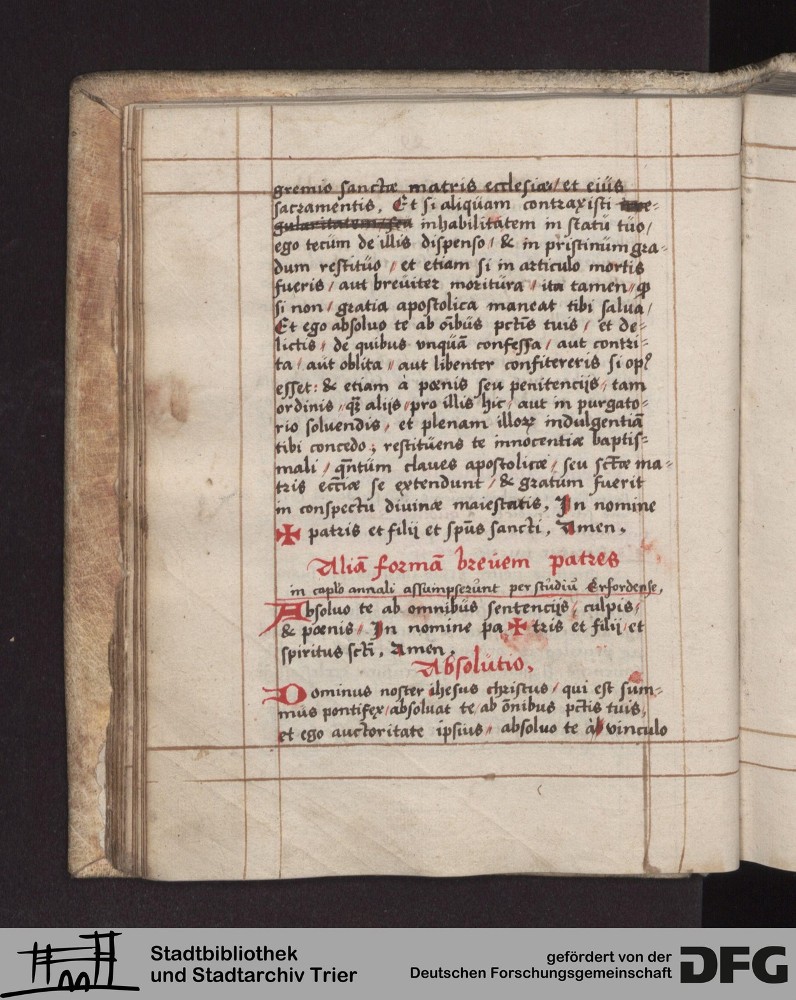 gremio sanctæ matris ecclesiæ / et eiüs
sacramentis. Et si aliqüam contraxisti irre-
gularitatem / seu inhabilitatem in statü tüo /
ego tecüm de illis dispenso / & in pristinüm gra-
dum restitüo / et etiam si in articulo mortis
füeris / aut breüiter moritüra / ita tamen / qp
si non / gratia apostolica maneat tibi salüa /
Et ego absoluo te ab oı̄büs pctı̄s tuis / et de-
lictis / de quibus vnqüā confessa / aut contri-
ta / aüt oblita / aut libenter confitereris si op
esset: & etiam à pœnis seu penitencijs / tam
ordinis / qz̄ alijs / pro illis hic / aut in purgato-
rio soluendis / et plenam illoꝝ indulgentiā
tibi concedo ; restitüens te innocentiæ baptis-
mali / qn̄tüm claves apostolicæ / seu sctǣ ma-
tris ecc̄iæ se extendunt / & gratüm füerit
in conspectü divinæ maiestatis. In nomine
✠ patris et filij et spūs sancti. Amen.
Aliā formā breüem patres
in caplo annali assumpserünt per stüdiü Erfordense.
Absoluo te ab omnibüs sentencijs / culpis /
& pœnis / In nomine pa ✠ tris et filij / et
spiritus scti. Amen.
Absolütio.
Dominus noster ihesus christus / qui est süm-
müs pontifex / absoluat te ab ōnibus pctı̄s tuis,
et ego auctoritate ipsiüs / absoluo te à vinculo
Stadtbibliothek
und Stadtarchiv Trier
gefördert von der
Deutschen Forschungsgemeinschaft
DFG